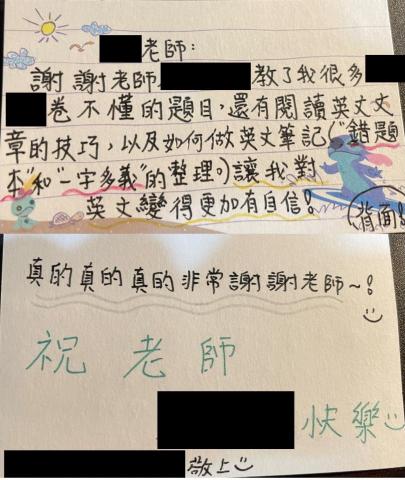 老師：
謝謝老師 教了我很多
卷不懂的題目，還有閱讀英文文
章的技巧，以及如何做英文筆記（"錯題
本"和"一字多義"的整理）讓我對
英文變得更加有自信！
（背面！
真的真的真的非常謝謝老師～！
祝老師
快樂
敬上